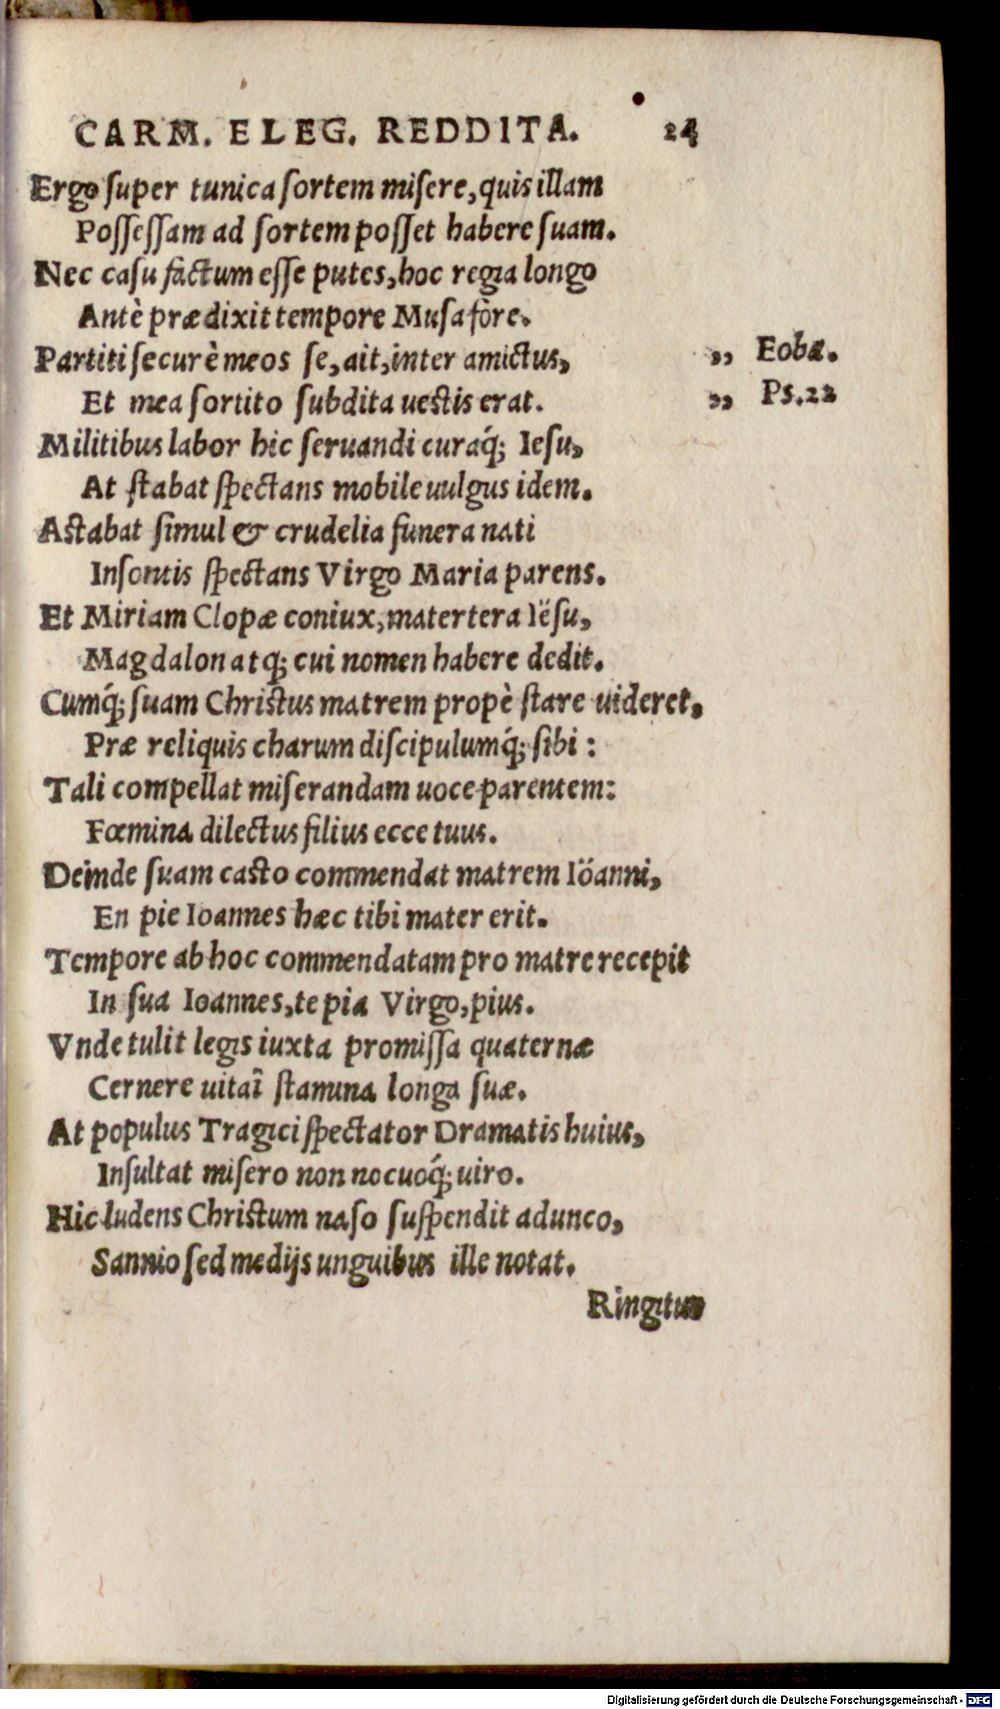 CARM. ELEG. REDDITA. 24
Ergo super tunica sortem misere, quis illam
Possessam ad sortem posset habere suam.
Nec casu factum esse putes, hoc regia longo
Antè prædixit tempore Musa fòre.
Partiti securè meos se, ait, inter amictus, „ Eobæ.
Et mea sortito subdita uestis erat. „ Ps. 22
Militibus labor hic seruandi curaq́; Iesu,
At stabat spectans mobile uulgus idem.
Astabat simul & crudelia funera nati
Insontis spectans Virgo Maria parens.
Et Miriam Clopæ coniux, matertera Iësu,
Magdalon atq; cui nomen habere dedit.
Cumq́; suam Christus matrem propè stare uideret,
Præ reliquis charum discipulumq́; sibi:
Tali compellat miserandam uoce parentem:
Fœmina dilectus filius ecce tuus.
Deinde suam casto commendat matrem Iöanni,
En pie Ioannes hæc tibi mater erit.
Tempore ab hoc commendatam pro matre recepit
In sua Ioannes, te pia Virgo, pius.
Vnde tulit legis iuxta promissa quaternæ
Cernere uitaï stamina longa suæ.
At populus Tragici spectator Dramatis huius,
Insultat misero non nocuoq́; uiro.
Hic ludens Christum naso suspendit adunco,
Sannio sed medijs unguibus ille notat.
Ringitur
Digitalisierung gefördert durch die Deutsche Forschungsgemeinschaft - DFG